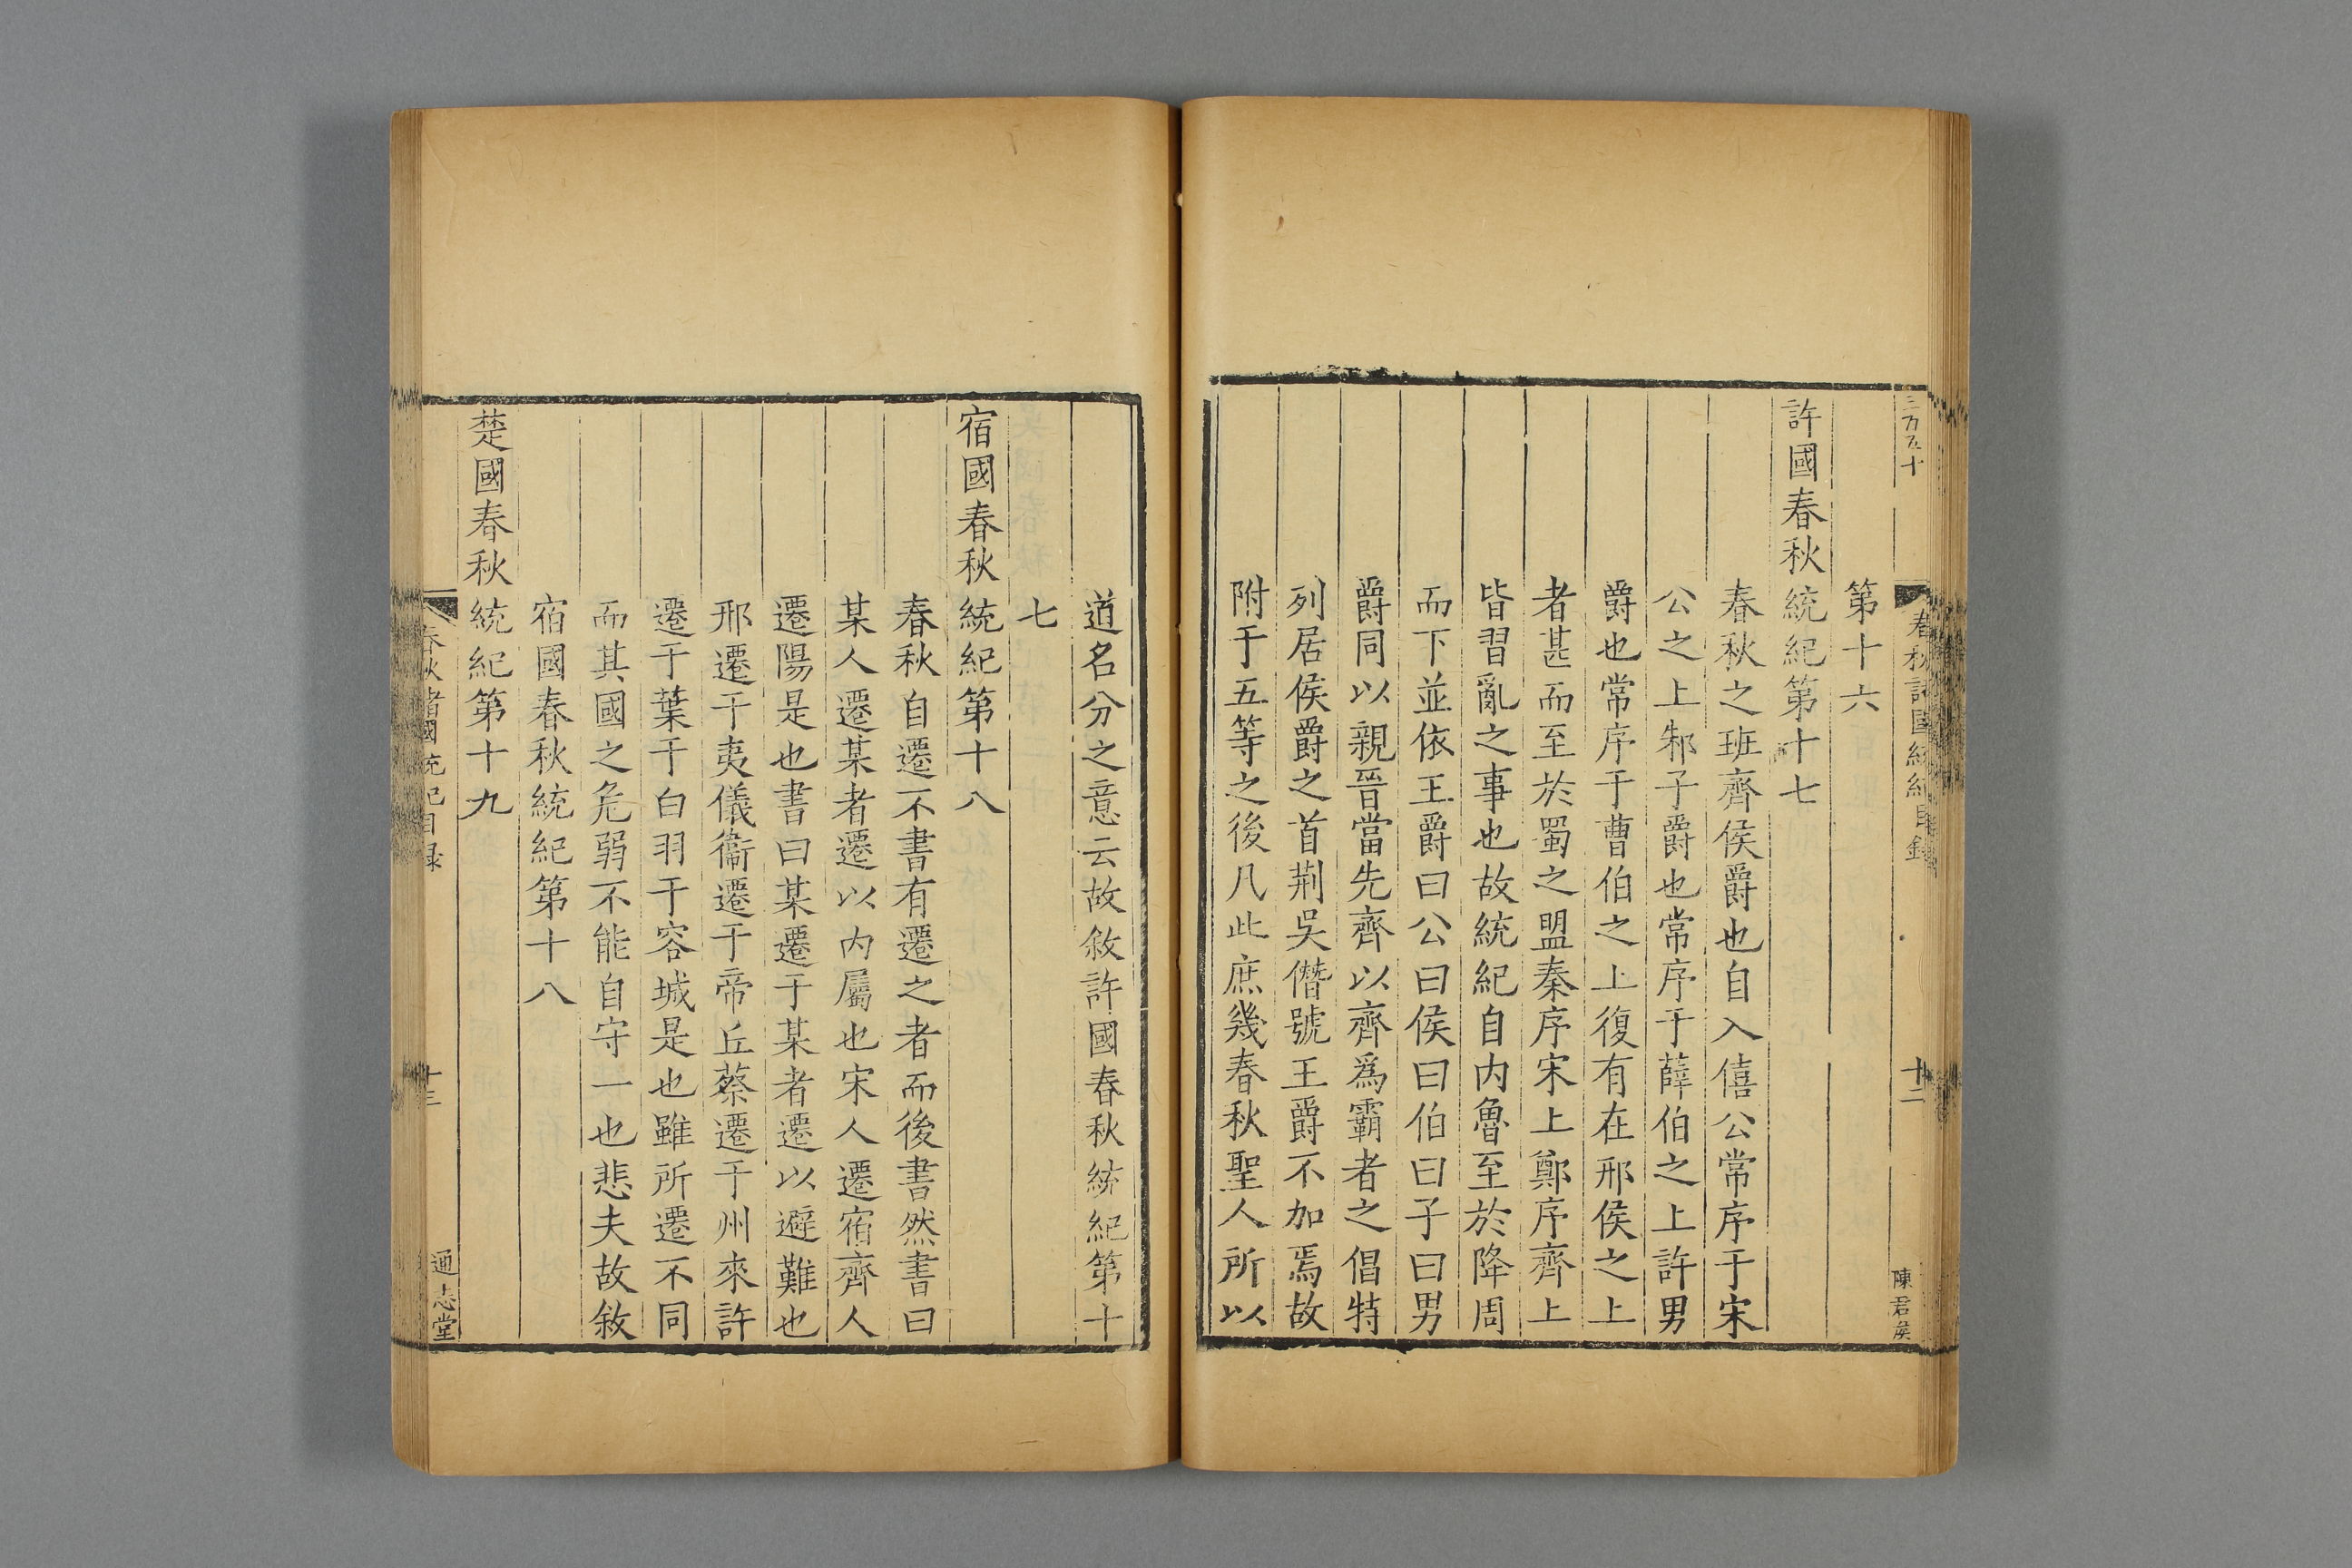 三百五十
春秋諸國統紀目錄
十二
陳君矦
第十六
許國春秋統紀第十七
春秋之班齊侯爵也自入僖公常序于宋
公之上邾子爵也常序于薛伯之上許男
爵也常序于曹伯之上復有在邢侯之上
者甚而至於蜀之盟秦序宋上鄭序齊上
皆習亂之事也故統紀自内魯至於降周
而下並依王爵曰公曰侯曰伯曰子曰男
爵同以親晉當先齊以齊爲霸者之倡特
列居侯爵之首荆吳僭號王爵不加焉故
附于五等之後凡此庶幾春秋聖人所以
道名分之意云故敘許國春秋統紀第十
七
宿國春秋統紀第十八
春秋自遷不書有遷之者而後書然書曰
某人遷某者遷以内屬也宋人遷宿齊人
遷陽是也書曰某遷于某者遷以避難也
邢遷于夷儀衞遷于帝丘蔡遷于州來許
遷于葉于白羽于容城是也雖所遷不同
而其國之危弱不能自守一也悲夫故敘
宿國春秋統紀第十八
楚國春秋統紀第十九
春秋諸國統紀目録
十三
通志堂